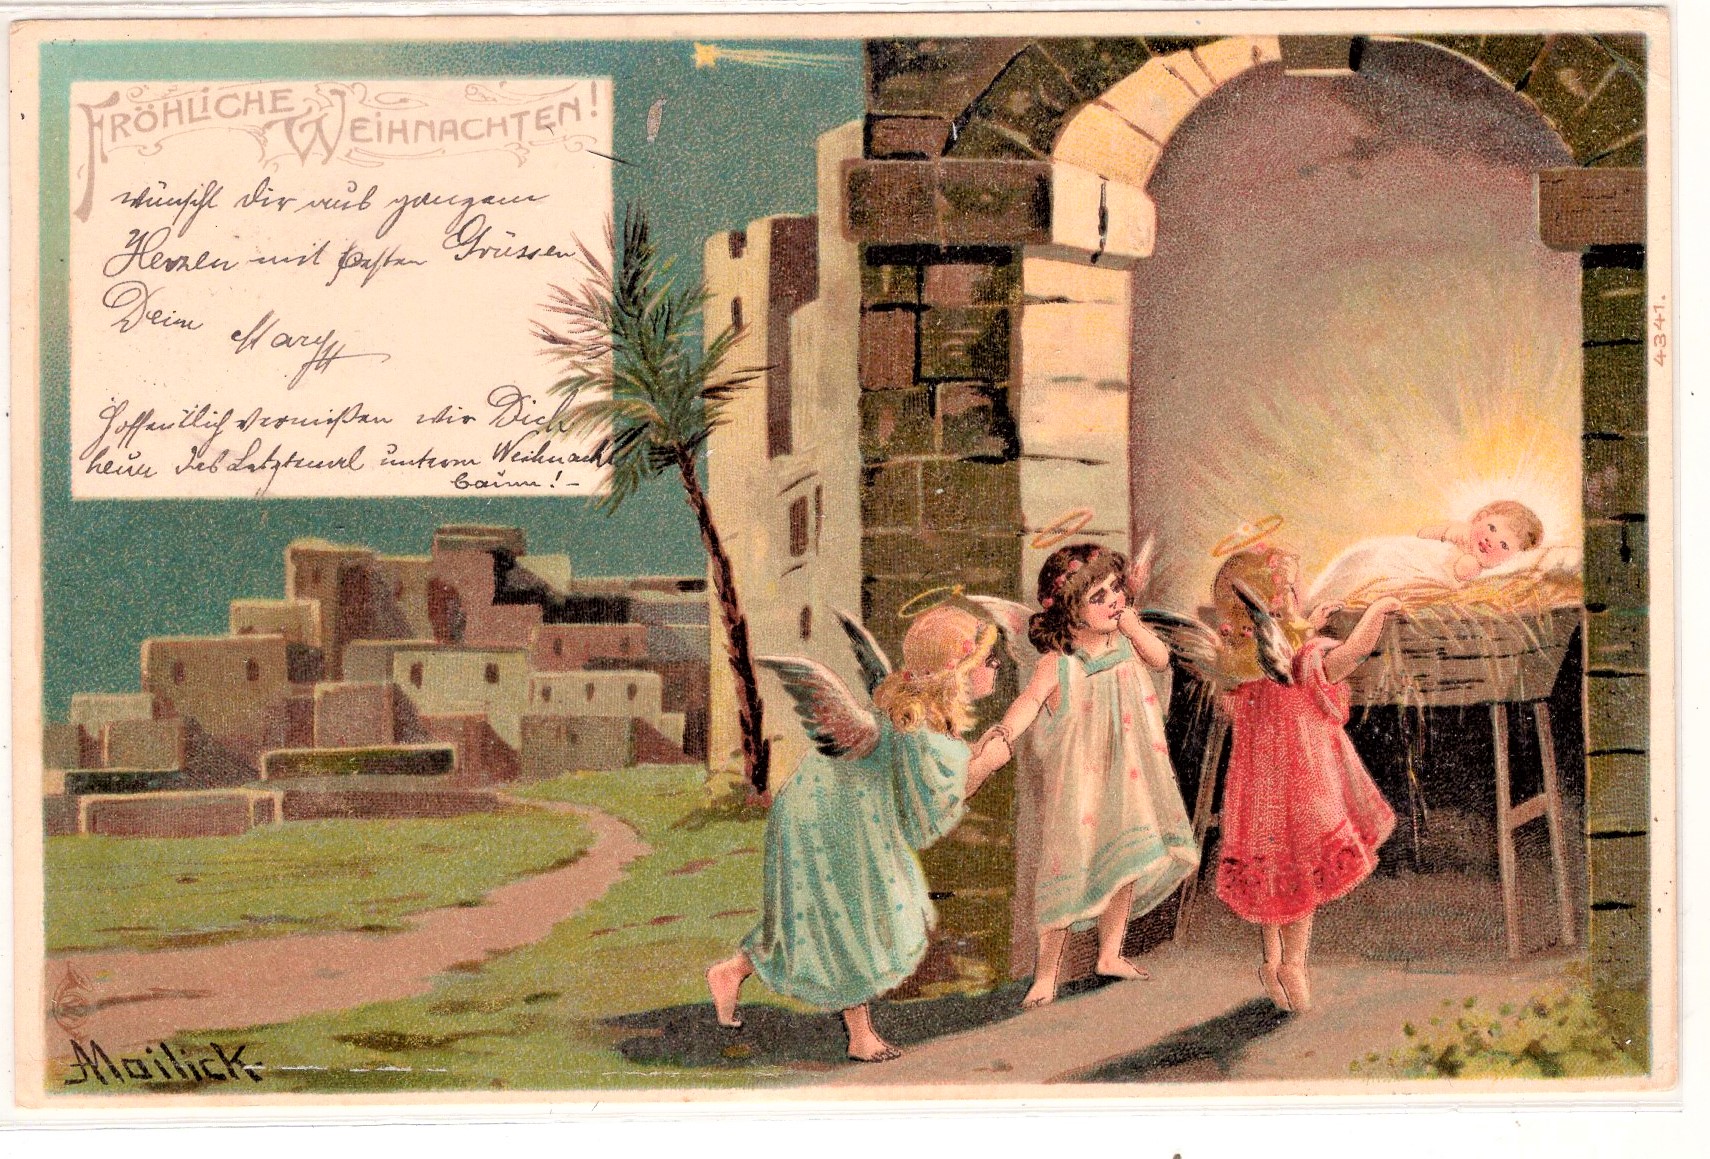 FRÖHLICHE WEIHNACHTEN!
wünscht Dir aus ganzem
Herzen mit besten Grüssen
Deine
Mary
Hoffentlich vermißen wir Dich
heuer das Letztemal unterm Weihnacht
baum! -
4341.
Mailick